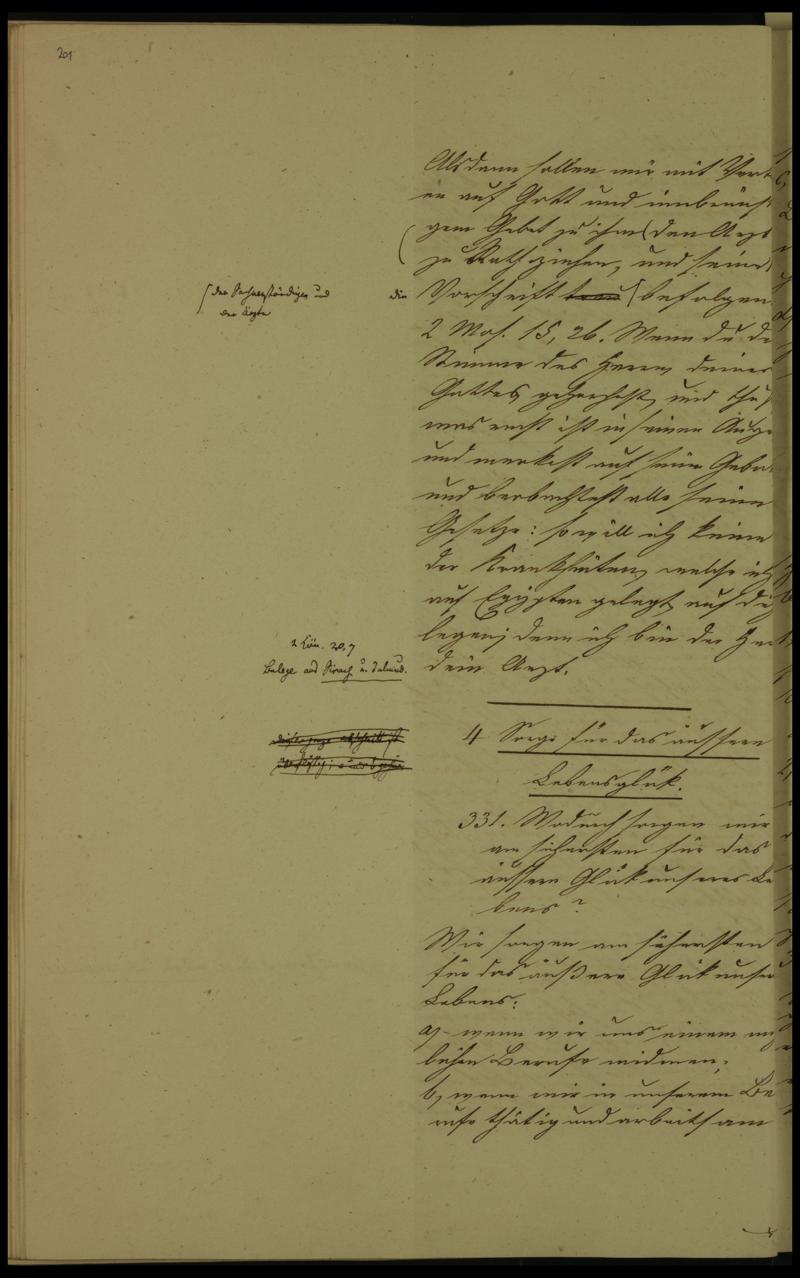 201
Alsdann sollen wir mit Vert
en auf Gott und innbrünst
gem Gebet zu ihm den Arzt
zu Rath ziehen, und seine
Vorschrift treu befolgen
der Sachverständigen und
der Ärzte
die
2 Mos. 15, 26. Wenn du de
Stimme des Herrn deines
Gottes gehorchest, und thus
was recht ist in seinen Auge
und merkest auf seine Gebo
und beobachtest alle seine
Gesetze: so will ich keine
der Krankheiten, welche ich
auf Egypten gelegt, auf dich
legen; denn ich bin der Her
dein Arzt.
2 Kön. 20,7
Belege aus Sirach u. Talmud.
4 Sorge für das äussere
Lebensglük.
331. Wodurch sorgen wir
am sichersten für das
äussere Glük unseres Le
bens?
Wir sorgen am sichersten
für das äußere Glük unser
Lebens:
a, wenn wir uns einem nüz
lichen Berufe widmen;
b, wenn wir in unserem Be
rufe thätig und arbeitsam